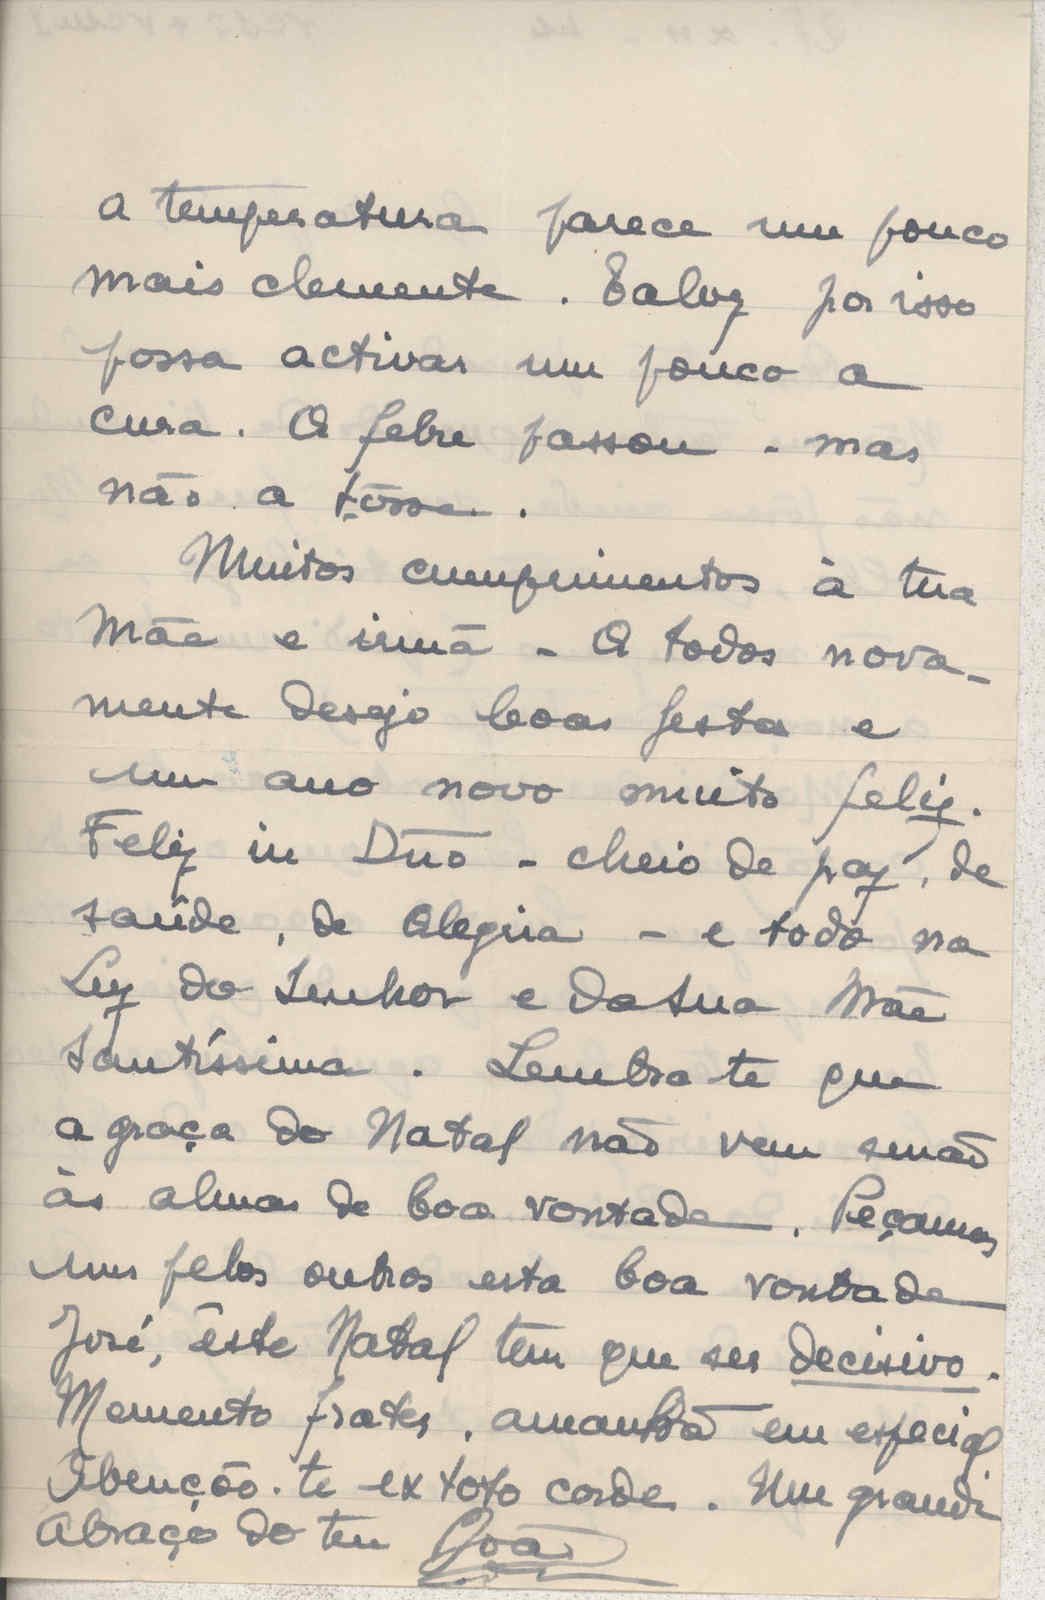 a temperatura parece um pouco
mais clemente. Talvez por isso
possa activar um pouco a
cura. A febre passou - mas
não a tosse.
Muitos cumprimentos à tua
Mãe e irmã - A todos nova-
mente desejo boas festas e
um ano novo muito feliz.
Feliz in Dno - cheio de paz, de
saúde, de alegria - e todo na
Luz do Senhor e da sua Mãe
Santíssima. Lembra-te que
a graça do Natal não vem senão
às almas de boa vontade. Peçamos
uns pelos outros esta boa vontade
José, êste Natal tem que ser decisivo.
Memento frater, amanhã em especial
Abenção-te ex toto corde. Um grande
Abraço do teu João